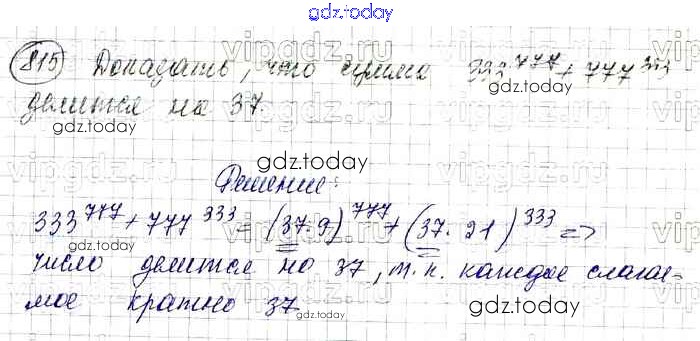 gdz.today
815 Доказать, что сумма 333^777 + 777^333
делится на 37.
gdz.today
gdz.today
gdz.today
Решение:
333^777 + 777^333 = (37·9)^777 + (37·21)^333 =>
число делится на 37, т.к. каждое слага-
мое кратно 37.
gdz.today
gdz.today
vipgdz.ru
vipgdz.ru
vipgdz.ru
vipgdz.ru